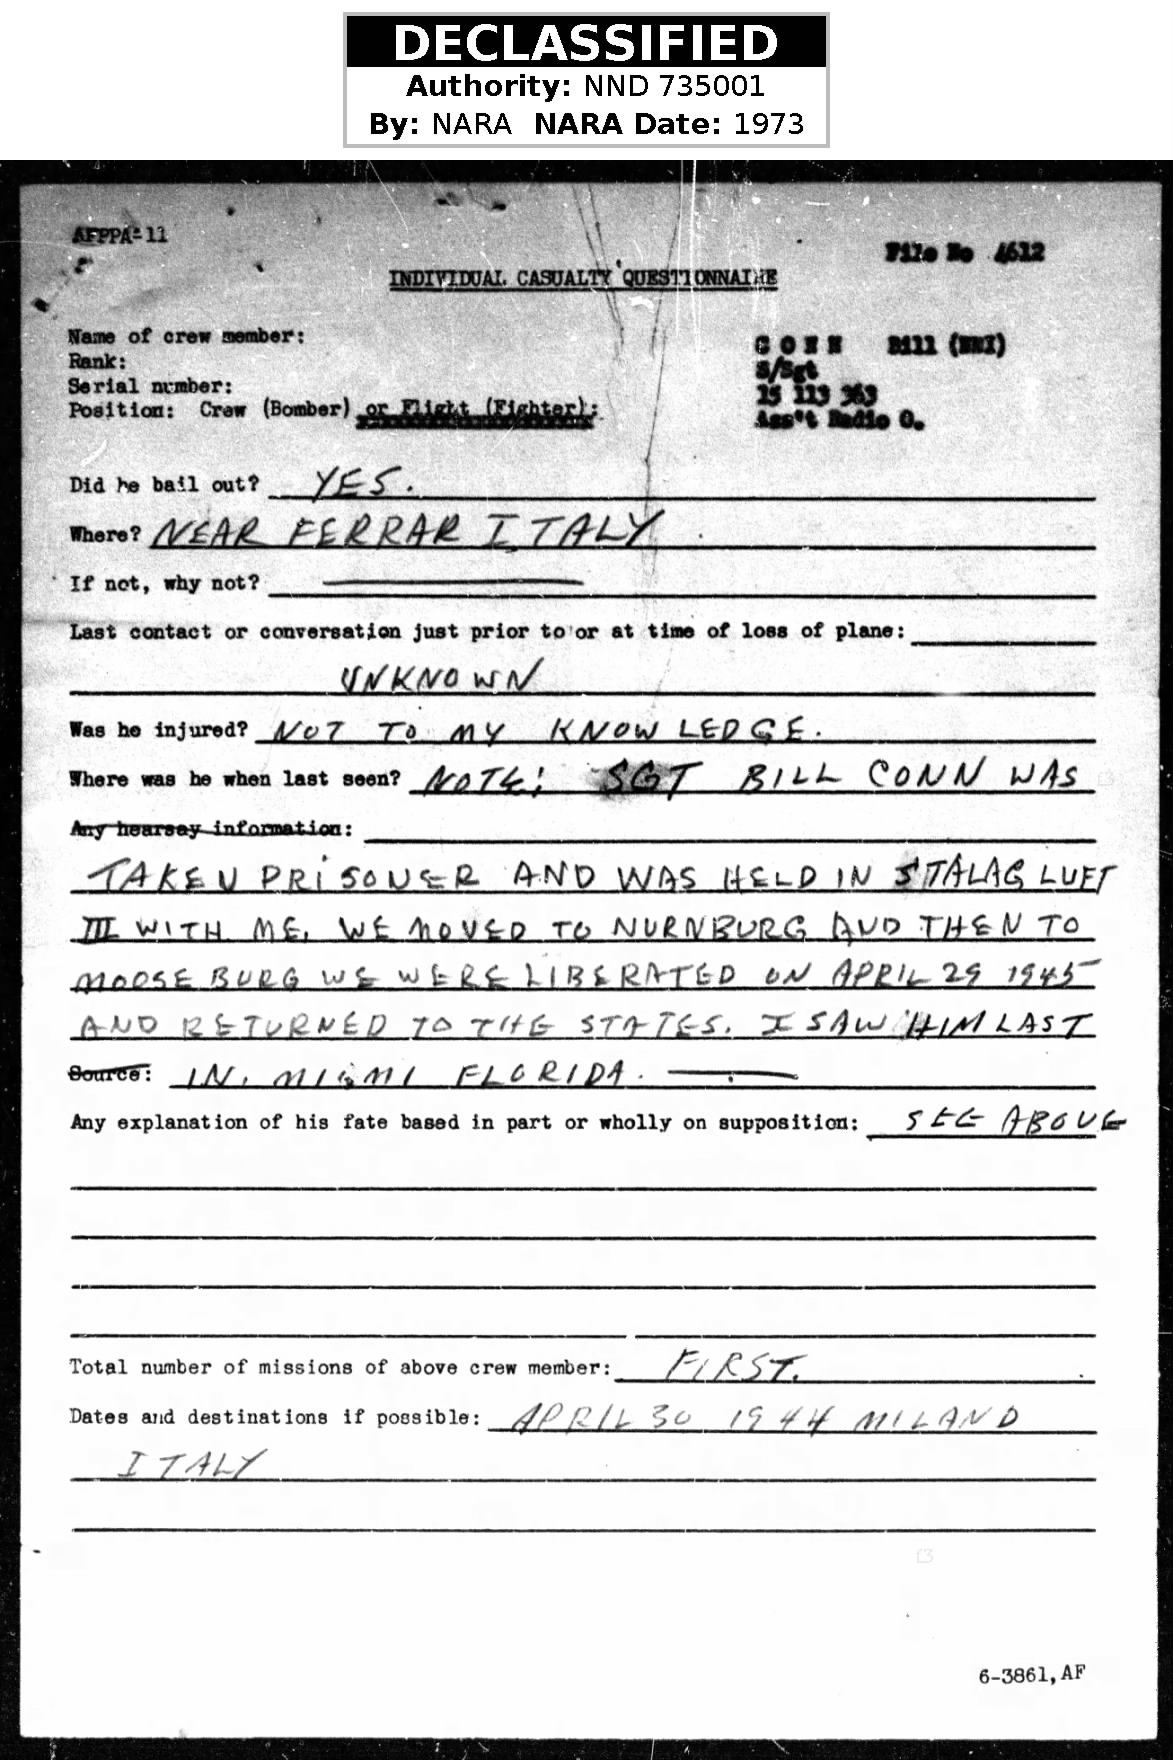 DECLASSIFIED
Authority: NND 735001
By: NARA NARA Date: 1973
AFPPA-11
File No 4612
INDIVIDUAL CASUALTY QUESTIONNAIRE
Name of crew member: CONN Bill (NMI)
Rank: S/Sgt
Serial number: 15 113 363
Position: Crew (Bomber) or Flight (Fighter): Ass't Radio O.
Did he bail out? YES.
Where? NEAR FERRAR ITALY
If not, why not?
Last contact or conversation just prior to or at time of loss of plane:
UNKNOWN
Was he injured? NOT TO MY KNOWLEDGE.
Where was he when last seen? NOTE: SGT BILL CONN WAS
Any hearsay information:
TAKEN PRISONER AND WAS HELD IN STALAG LUFT
III WITH ME. WE MOVED TO NURNBURG AND THEN TO
MOOSEBURG WE WERE LIBERATED ON APRIL 29 1945
AND RETURNED TO THE STATES. I SAW HIM LAST
Source: IN. MIAMI FLORIDA.
Any explanation of his fate based in part or wholly on supposition: SEE ABOVE
Total number of missions of above crew member: FIRST.
Dates and destinations if possible: APRIL 30 1944 MILAND
ITALY
6-3861,AF